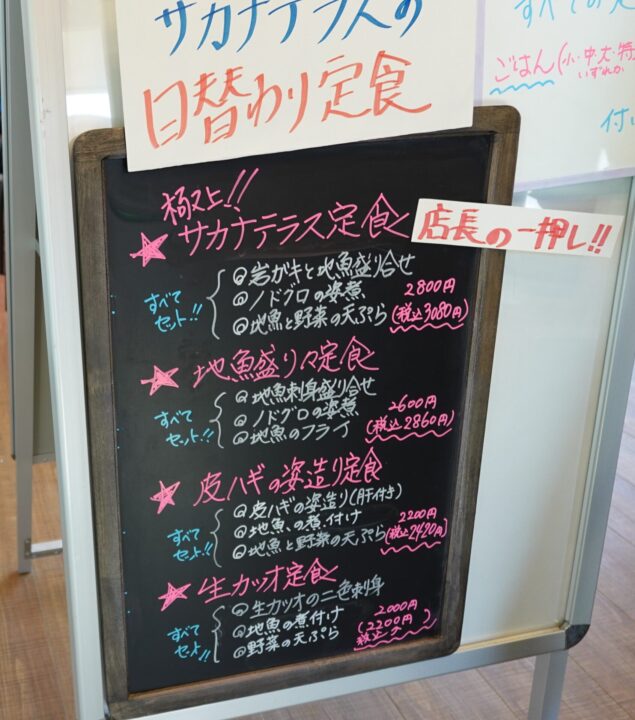 サカナテラスの
日替わり定食
すべての定
ごはん(小・中・大・特
いずれか
付い
極上!!
★サカナテラス定食
店長の一押し!!
すべて
セット!!
◎岩ガキと地魚盛り合せ
◎ノドグロの姿煮
◎地魚と野菜の天ぷら
2800円
(税込3080円)
★地魚盛り々定食
すべて
セット!!
◎地魚刺身盛り合せ
◎ノドグロの姿煮
◎地魚のフライ
2600円
(税込2860円)
★皮ハギの姿造り定食
すべて
セット!!
◎皮ハギの姿造り(肝付き)
◎地魚の煮付け
◎地魚と野菜の天ぷら
2200円
(税込2420円)
★生カツオ定食
すべて
セット!!
◎生カツオの二色刺身
◎地魚の煮付け
◎野菜の天ぷら
2000円
(2200円)
税込